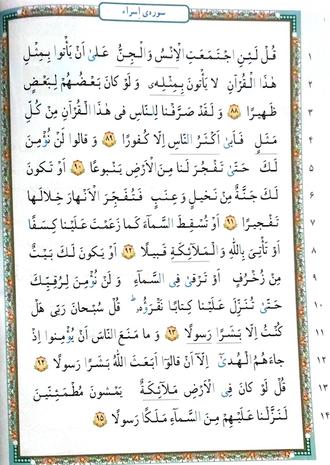 سوره‌ی اسراء
۱ قُل لَئِنِ اجْتَمَعَتِ الْاِنْسُ وَالْجِنُّ عَلىٰ اَنْ يَأْتُوا بِمِثْلِ
۲ هٰذَا الْقُرْآنِ لا يَأْتُونَ بِمِثْلِهِ وَ لَوْ كانَ بَعْضُهُمْ لِبَعْضٍ
۳ ظَهيرًا ۸۸ وَ لَقَدْ صَرَّفْنا لِلنّاسِ فى هٰذَا الْقُرْآنِ مِنْ كُلِّ
۴ مَثَلٍ فَاَبىٰ اَكْثَرُ النّاسِ اِلّا كُفُورًا ۸۹ وَ قالوا لَنْ نُؤْمِنَ
۵ لَكَ حَتّىٰ تَفْجُرَ لَنا مِنَ الْاَرْضِ يَنْبوعًا ۹۰ اَوْ تَكونَ
۶ لَكَ جَنَّةٌ مِنْ نَخيلٍ وَ عِنَبٍ فَتُفَجِّرَ الْاَنْهارَ خِلالَها
۷ تَفْجيرًا ۹۱ اَوْ تُسْقِطَ السَّمآءَ كَما زَعَمْتَ عَلَيْنا كِسَفًا
۸ اَوْ تَأْتِىَ بِاللّٰهِ وَالْمَلآئِكَةِ قَبيلًا ۹۲ اَوْ يَكونَ لَكَ بَيْتٌ
۹ مِنْ زُخْرُفٍ اَوْ تَرْقىٰ فِى السَّمآءِ وَ لَنْ نُؤْمِنَ لِرُقِيِّكَ
۱۰ حَتّىٰ تُنَزِّلَ عَلَيْنا كِتابًا نَقْرَؤُهُ ط قُلْ سُبْحانَ رَبّى هَلْ
۱۱ كُنْتُ اِلّا بَشَرًا رَسولًا ۹۳ وَ ما مَنَعَ النّاسَ اَنْ يُؤْمِنوا اِذْ
۱۲ جآءَهُمُ الْهُدىٰٓ اِلّآ اَنْ قالوٓا اَبَعَثَ اللّٰهُ بَشَرًا رَسولًا ۹۴
۱۳ قُلْ لَوْ كانَ فِى الْاَرْضِ مَلآئِكَةٌ يَمْشونَ مُطْمَئِنّينَ
۱۴ لَنَزَّلْنا عَلَيْهِمْ مِنَ السَّمآءِ مَلَكًا رَسولًا ۹۵